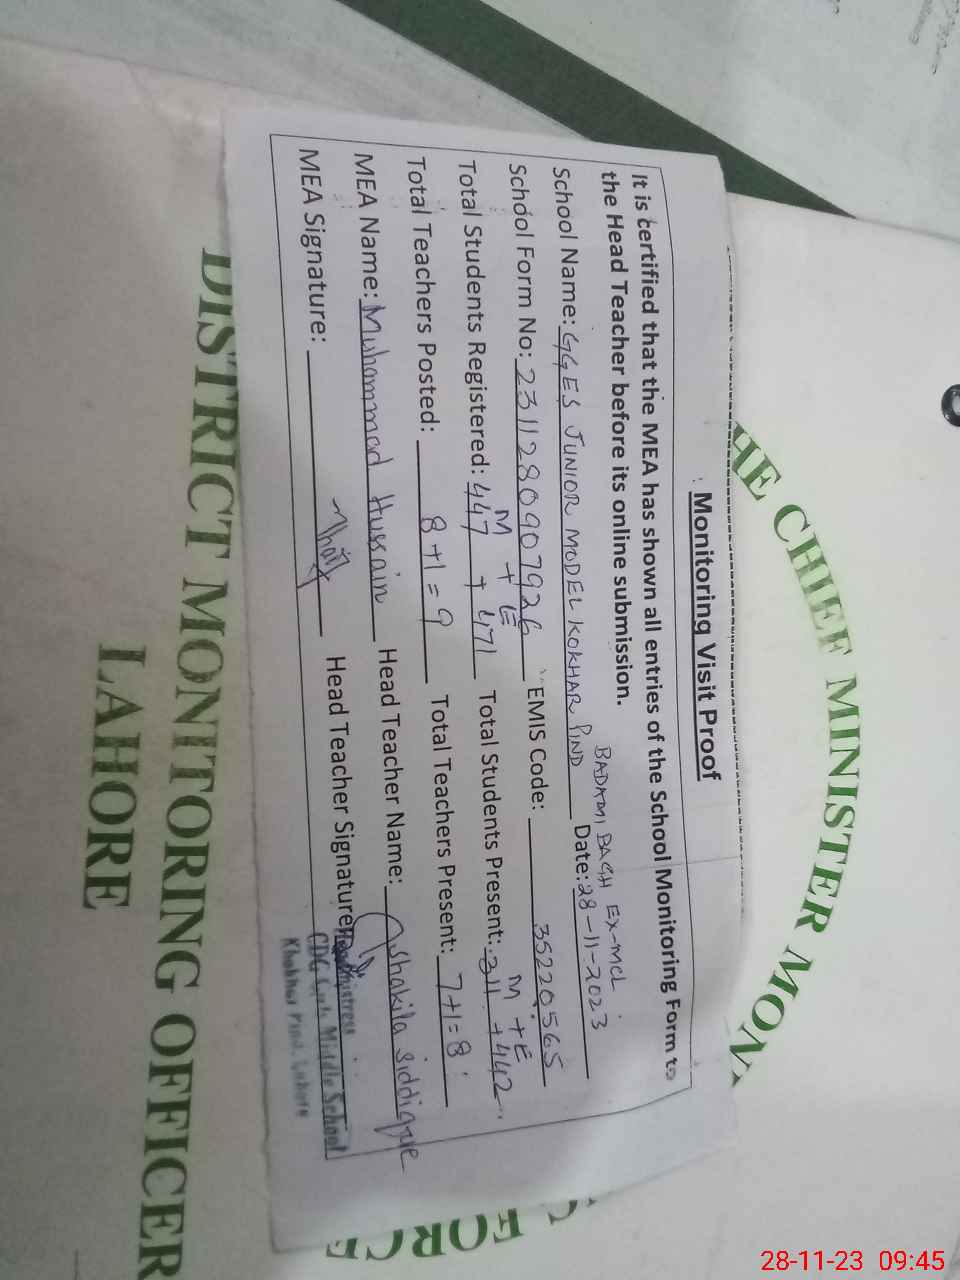 Monitoring Visit Proof
It is certified that the MEA has shown all entries of the School Monitoring Form to
the Head Teacher before its online submission.
BADAMI BAGH EX-MCL
School Name: GGES JUNIOR MODEL KOKHAR PIND Date: 28-11-2023
School Form No: 2311280907926 EMIS Code: 35220565
M + E M + E
Total Students Registered: 447 + 471 Total Students Present: 311 + 442
Total Teachers Posted: 8+1=9 Total Teachers Present: 7+1=8
MEA Name: Muhammad Hussain Head Teacher Name: Shakila Siddique
MEA Signature: Head Teacher Signature:
Headmistress
CDG Girls Middle School
Khokhar Pind, Lahore
HE CHIEF MINISTER MON
FORCE
DISTRICT MONITORING OFFICER
LAHORE
28-11-23 09:45